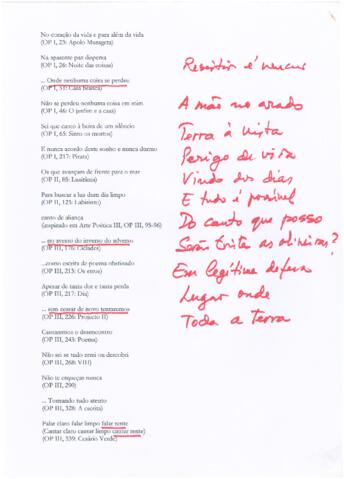 No coração da vida e para além da vida
(OP I, 23: Apolo Musageta)
Na aparente paz dispersa
(OP I, 26: Noite das coisas)
... Onde nenhuma coisa se perdeu
(OP I, 31: Casa Branca)
Não se perdeu nenhuma coisa em mim
(OP I, 46: O jardim e a casa)
Sei que canto à beira de um silêncio
(OP I, 65: Sinto os mortos)
E nunca acordo deste sonho e nunca durmo
(OP I, 217: Pirata)
Os que avançam de frente para o mar
(OP II, 85: Lusitânia)
Para buscar a luz dum dia limpo
(OP II, 125: Labirinto)
canto de aliança
(inspirado em Arte Poética III, OP III, 95-96)
... no avesso do inverso do adverso
(OP III, 176: Cíclades)
...como escrita de poema obstinado
(OP III, 213: Os erros)
Apesar de tanta dor e tanta perda
(OP III, 217: Dia)
... sem cessar de novo tentaremos
(OP III, 226: Projecto II)
Cantaremos o desencontro
(OP III, 243: Poema)
Não sei se tudo ermi ou descobri
(OP III, 268: VIII)
Não te esqueças nunca
(OP III, 290)
... Tornando tudo atento
(OP III, 328: A escrita)
Falar claro falar limpo falar rente
(Cantar claro cantar limpo cantar rente)
(OP III, 339: Cesário Verde)
Resistir é vencer
A mão no arado
Terra à vista
Perigo de vida
Vindo dos dias
E tudo é possível
Do canto que posso
Serão tristes as oliveiras?
Em legítima defesa
Lugar onde
Toda a terra